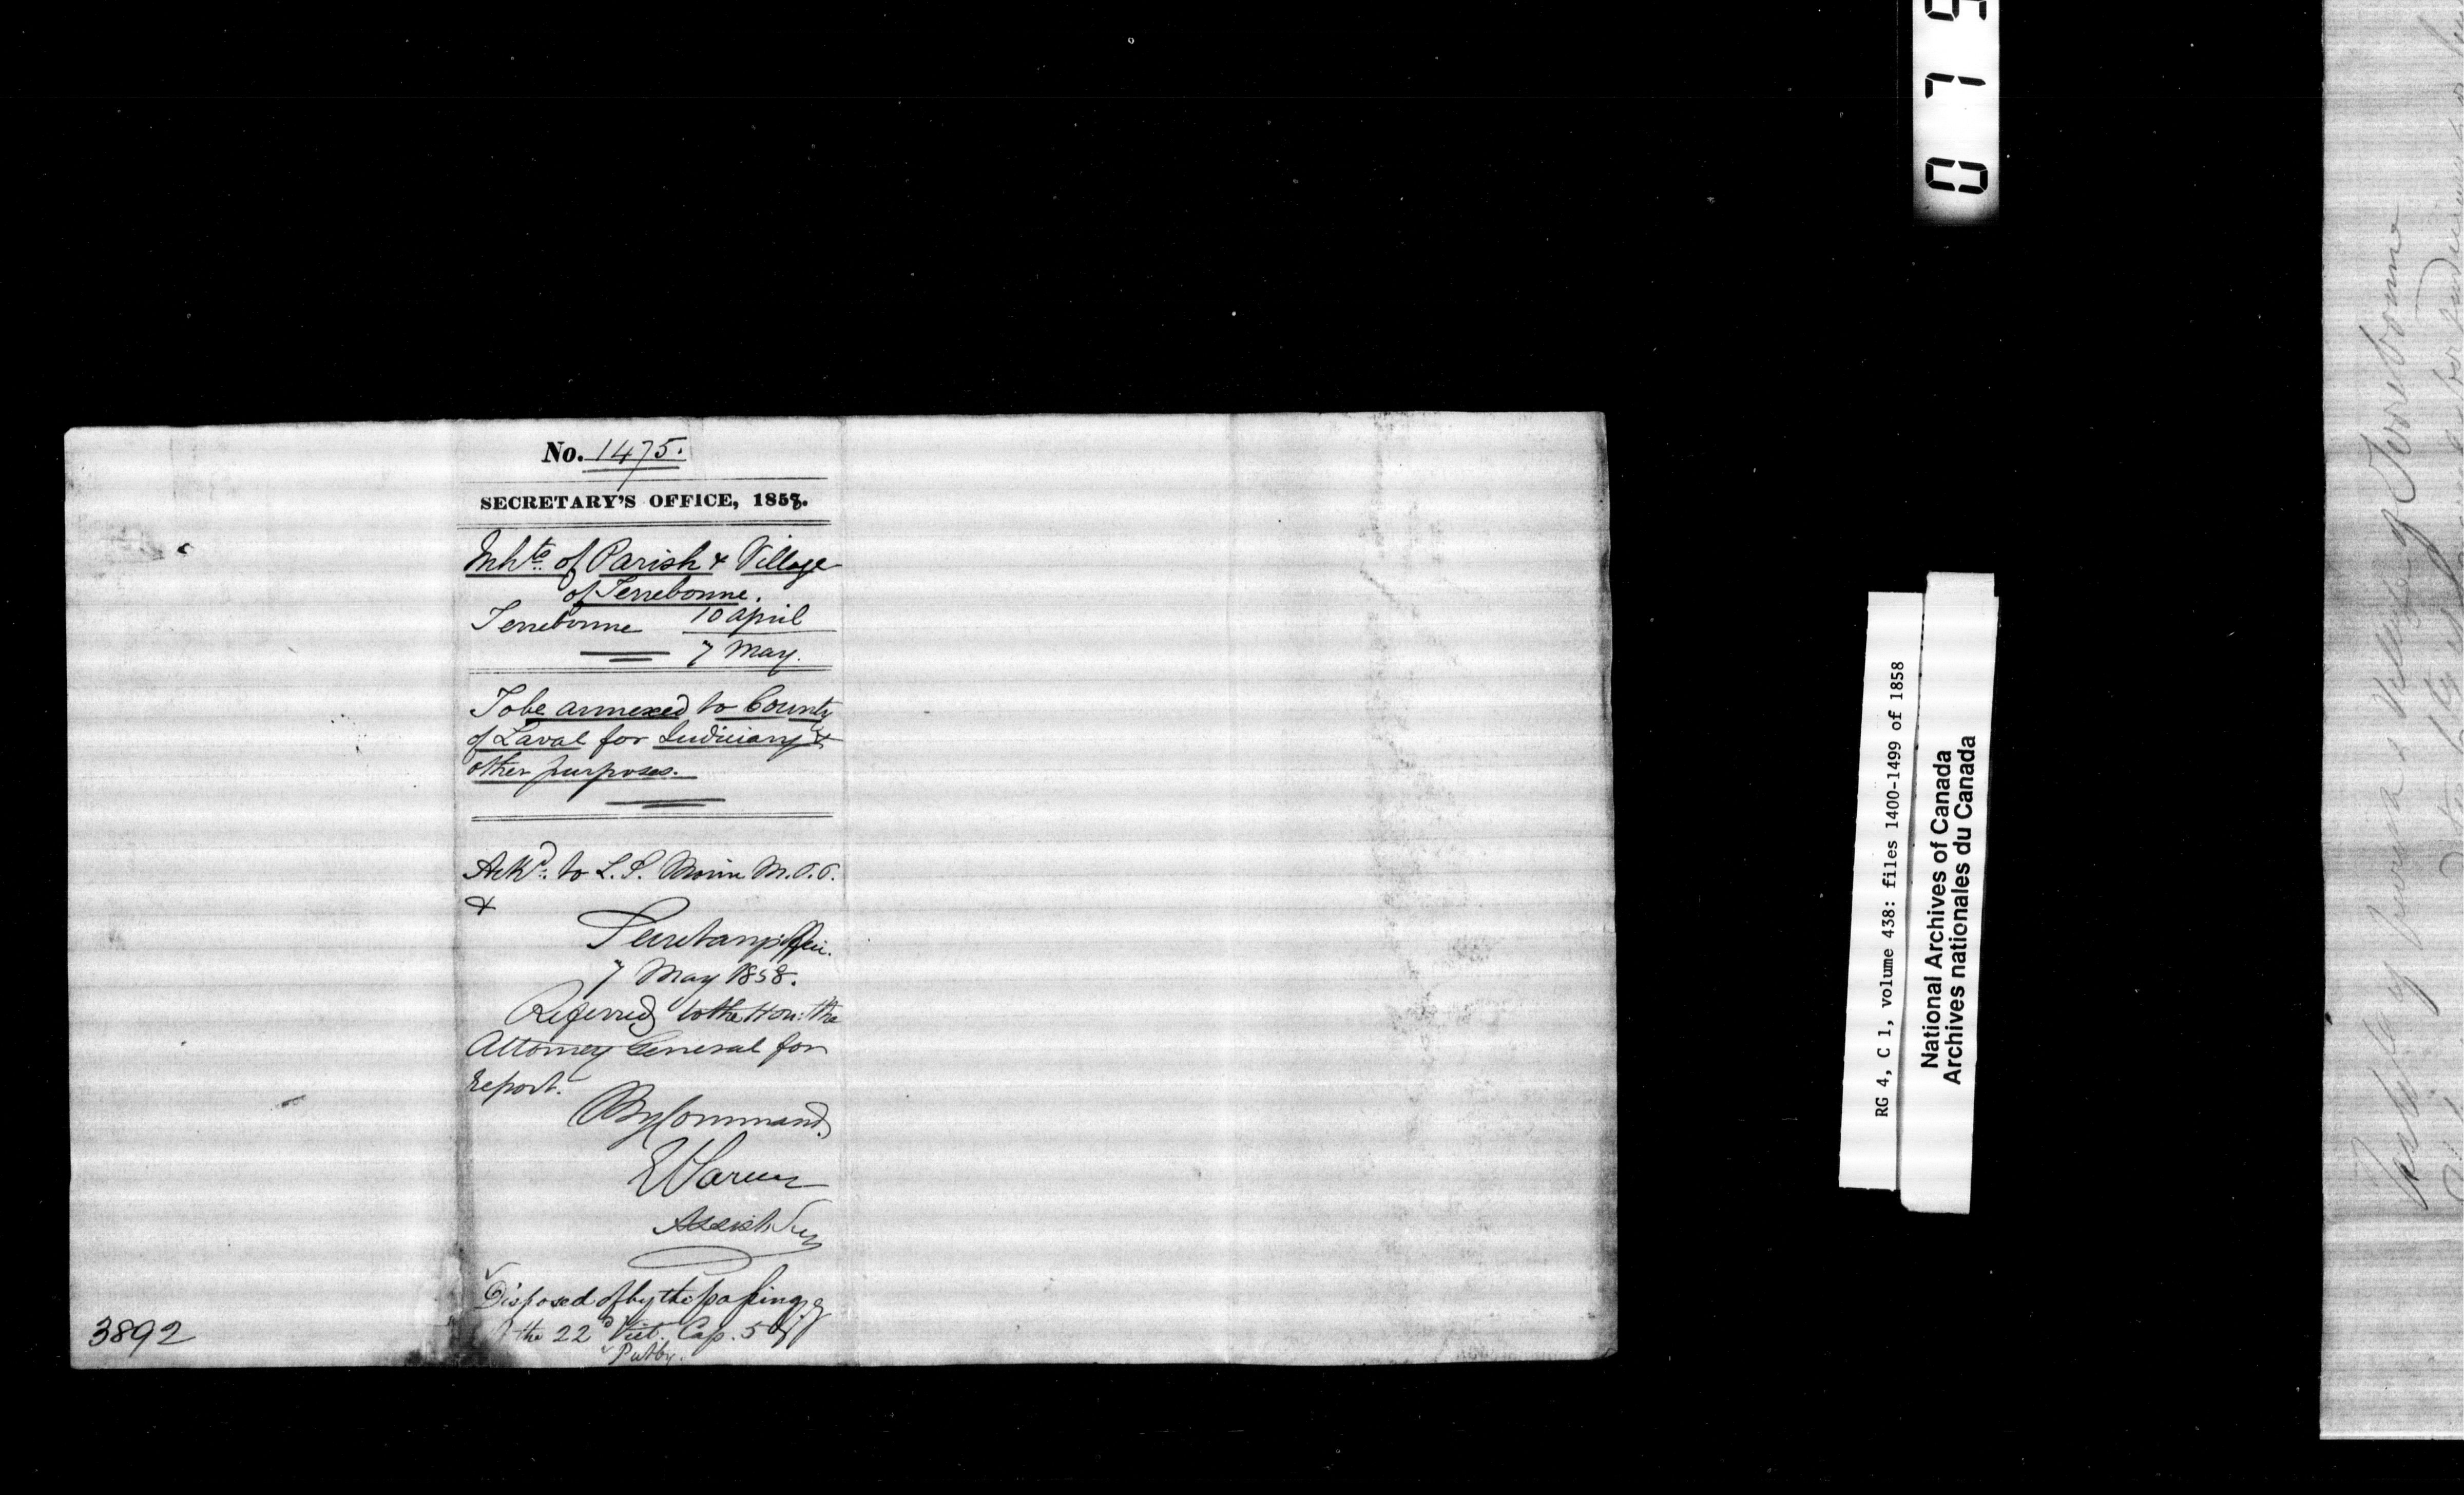 No. 1475.
SECRETARY'S OFFICE, 1858.
Inhts. of Parish & Village
of Terrebonne.
Terrebonne 10 April
7 May.
To be annexed to County
of Laval for Judiciary &
other purposes.
Ackd. to L. S. Morin M.P.P.
&
Secretary's Office.
7 May 1858.
Referred to the Hon: the
Attorney General for
Report.
By Command.
Assist Secy
Disposed of by the passing of
the 22d Vict. Cap. 5
3892
0 7 5
RG 4, C 1, volume 438: files 1400-1499 of 1858
National Archives of Canada
Archives nationales du Canada
Village of Terrebonne